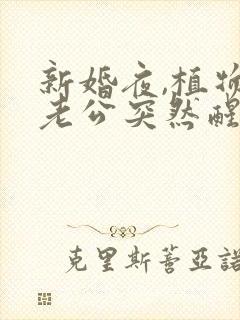 新婚夜,植物
老公突然醒
克里斯蒂亞諾